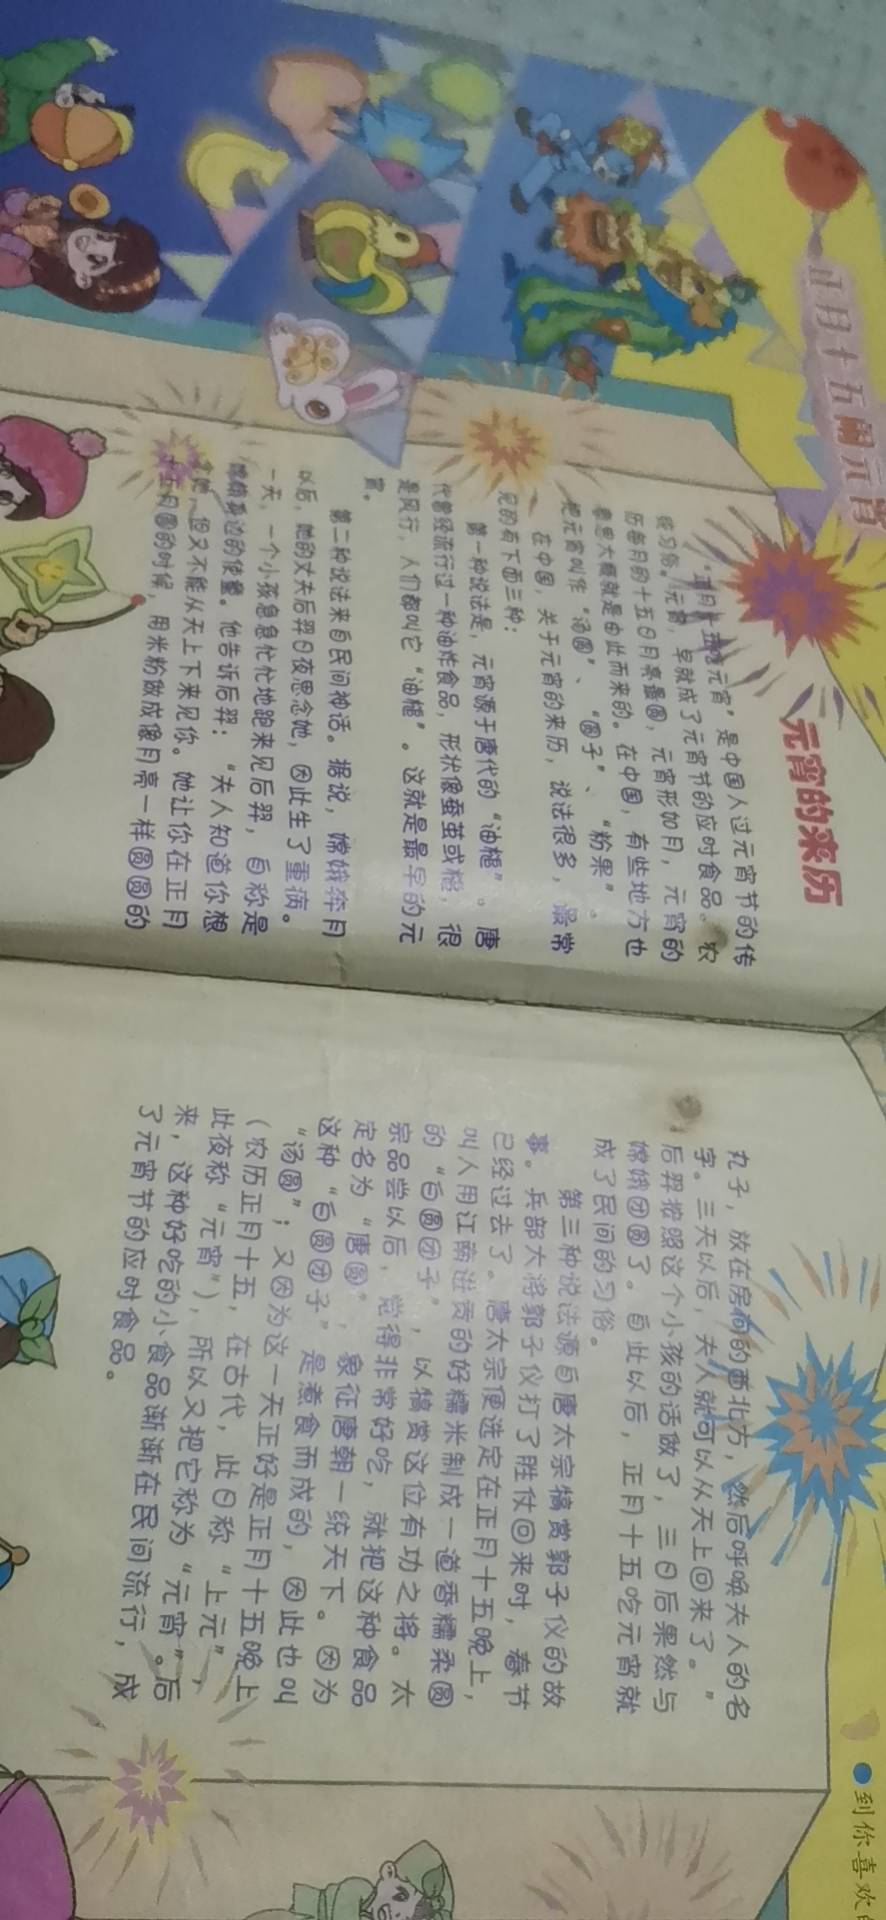 正月十五闹元宵
元宵的来历
“正月十五吃元宵”是中国人过元宵节的传
统习俗。元宵，早就成了元宵节的应时食品。农
历每月的十五日月亮最圆，元宵形如月，元宵的
意思大概就是由此而来的。在中国，有些地方也
把元宵叫作“汤圆”、“圆子”、“粉果”。
在中国，关于元宵的来历，说法很多，最常
见的有下面三种：
第一种说法是，元宵源于唐代的“油
”。唐
代曾经流行过一种油炸食品，形状像蚕茧或
，很
是风行，人们都叫它“油
”。这就是最早的元
宵。
第二种说法来自民间神话。据说，嫦娥奔月
以后，她的丈夫后羿日夜思念她，因此生了重病。
一天，一个小孩急急忙忙地跑来见后羿，自称是
嫦娥身边的使童。他告诉后羿：“夫人知道你想
念她，但又不能从天上下来见你。她让你在正月
十五月圆的时候，用米粉做成像月亮一样圆圆的
丸子，放在房间的西北方，然后呼唤夫人的名
字。三天以后，夫人就可以从天上回来了。”
后羿按照这个小孩的话做了，三日后果然与
嫦娥团圆了。自此以后，正月十五吃元宵就
成了民间的习俗。
第三种说法源自唐太宗犒赏郭子仪的故
事。兵部大将郭子仪打了胜仗回来时，春节
已经过去了。唐太宗便选定在正月十五晚上，
叫人用江南进贡的好糯米制成一道香糯柔圆
的“白圆团子”，以犒赏这位有功之将。太
宗品尝以后，觉得非常好吃，就把这种食品
定名为“唐圆”，象征唐朝一统天下。因为
这种“白圆团子”是煮食而成的，因此也叫
“汤圆”；又因为这一天正好是正月十五晚上
（农历正月十五，在古代，此日称“上元”，
此夜称“元宵”），所以又把它称为“元宵”。后
来，这种好吃的小食品渐渐在民间流行，成
了元宵节的应时食品。
●到你喜欢